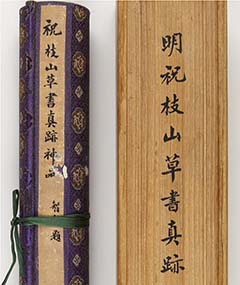 祝枝山草書真跡神品
明祝枝山草書真跡